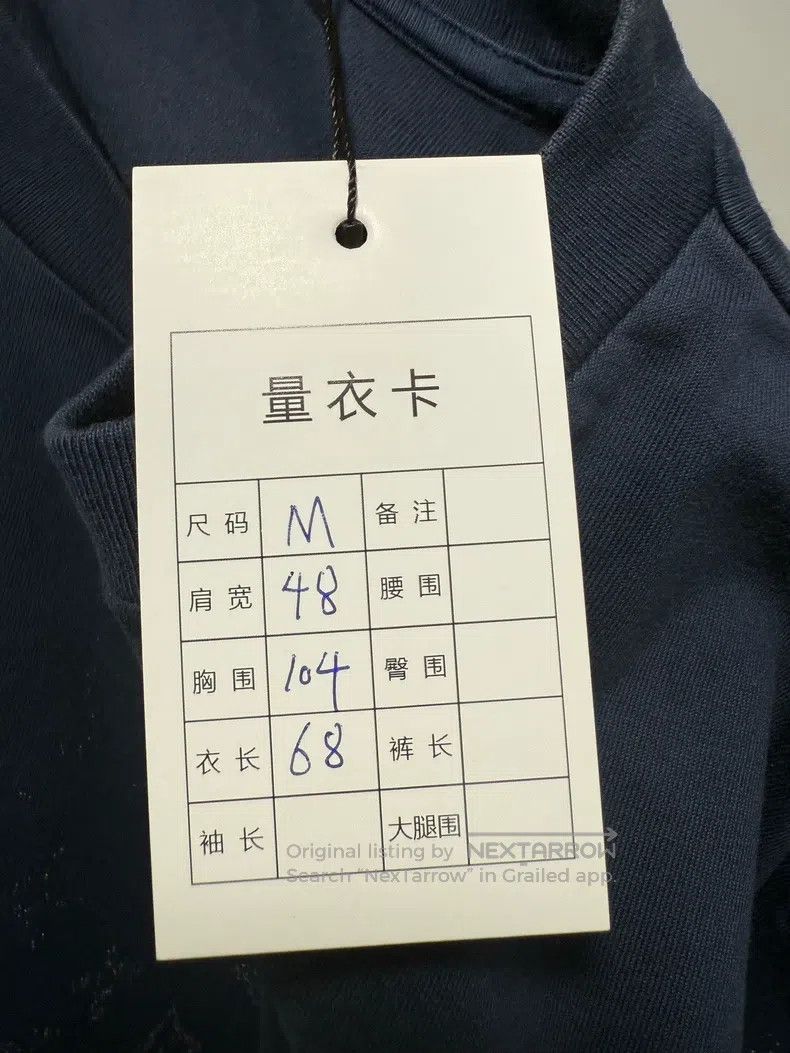 量衣卡
尺码 M 备注
肩宽 48 腰围
胸围 104 臀围
衣长 68 裤长
袖长 大腿围
Original listing by NEXTARROW
Search "NexTarrow" in Grailed app.